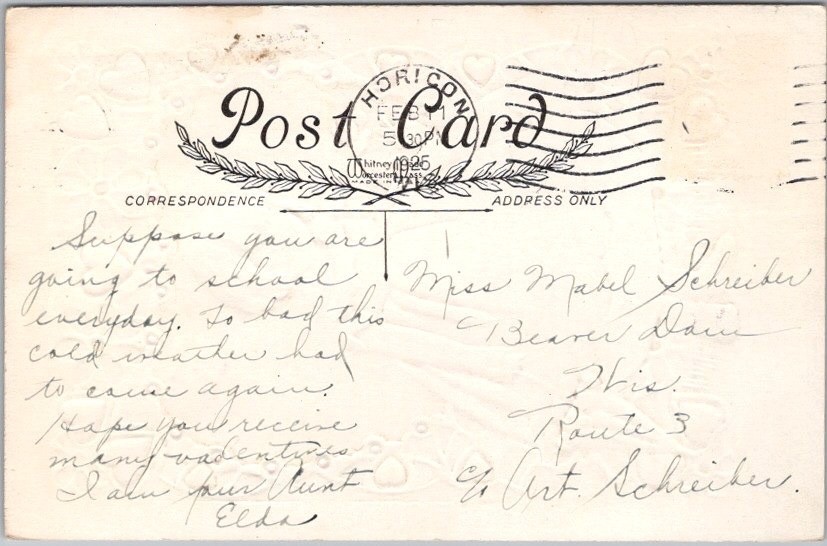 Post Card
HORICON
FEB 11
5 30 PM
1925
Whitney Made
Worcester, Mass
MADE IN
CORRESPONDENCE
ADDRESS ONLY
Suppose you are
going to school
everyday. To bad this
cold weather had
to come again.
Hope you receive
many valentines
I am your Aunt
Elda
Miss Mabel Schreiber
Beaver Dam
Wis.
Route 3
c/o Art. Schreiber.